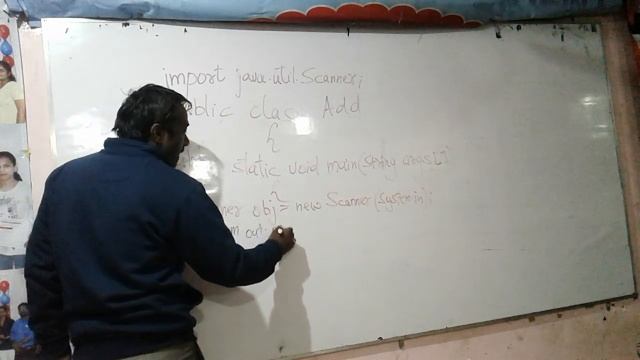 import java.util.Scanner;
blic class Add
{
static void main(String args[])
{
ner obj = new Scanner(System.in);
m out.